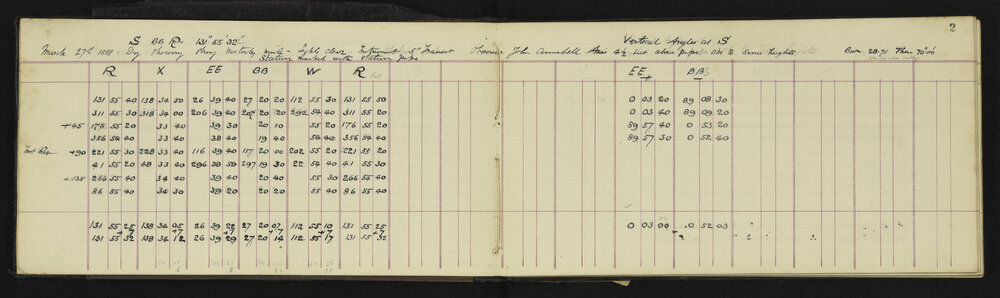 2
S BB R 131° 55' 32" Vertical Angles at S
March 27th 1898: Day Showery Strong Westerly wind - Lights Clear. Instrument 5" Transit Observer John Annabell Axis 4½ inst above pipe Obs to same heights Bar 28.71 Ther 70°00
Station marked with Station pipe
R X EE BB W R EE BB
131 55 40 138 34 50 26 39 40 27 20 20 112 55 30 131 55 50 0 03 20 89 08 30
311 55 30 318 34 00 206 39 40 207 20 20 292 54 40 311 55 20 0 03 40 89 09 20
+45 176 55 40 33 40 39 30 20 10 55 20 176 55 20 89 57 40 0 53 20
356 54 40 33 40 38 40 19 40 54 40 356 54 40 89 57 30 0 52 40
+90 221 55 30 228 33 40 116 39 40 117 20 00 202 55 20 221 55 20
41 55 20 48 33 40 296 38 50 297 19 30 22 54 40 41 55 30
+135 266 55 40 34 30 39 40 20 40 55 30 266 55 40
86 55 40 34 30 39 20 20 20 55 40 86 55 40
131 55 25 138 34 05 26 39 22 27 20 07 112 55 10 131 55 25 0 03 00 0 52 03
+7 +7 +7 +7 +7 +7
131 55 32 138 34 12 26 39 29 27 20 14 112 55 17 131 55 32